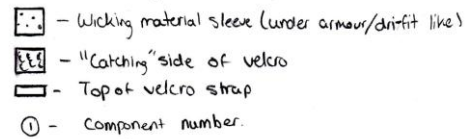 - Wicking material sleeve (under armour/dri-fit like)
- "Catching" side of velcro
- Top of velcro strap
① - Component number.